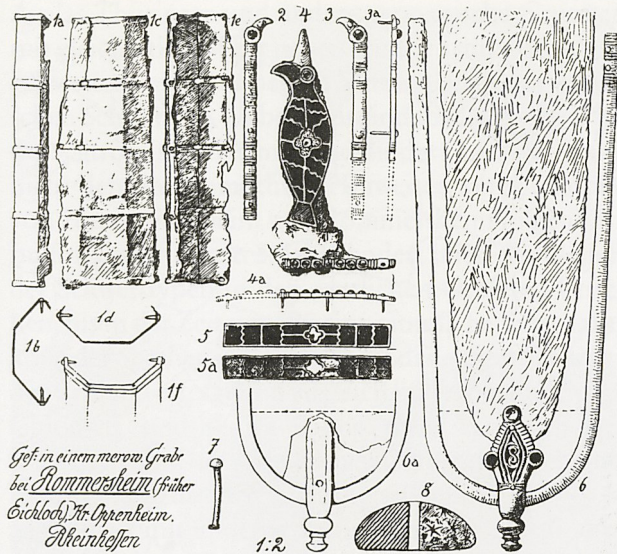 1a 1c 1e 2 4 3 3a
4a
1b 1d
1f
5
5a
6a
6
7
8
Gef: in einem merow. Grabe
bei Rommersheim (früher
Eichloch), Kr. Oppenheim.
Rheinhessen
1:2